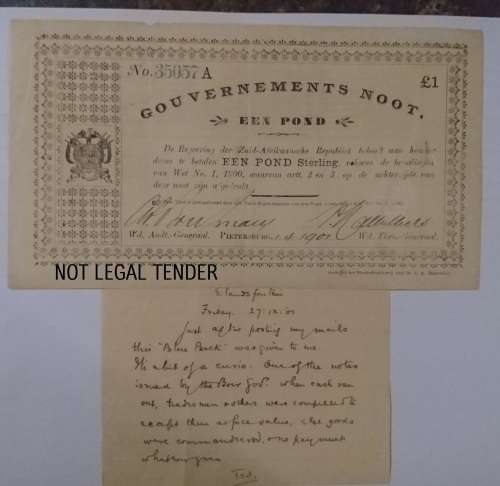 No. 35057 A
£1
GOUVERNEMENTS NOOT.
EEN POND
De Regeering der Zuid-Afrikaansche Republiek belooft aan
dezes te betalen EEN POND Sterling, volgens de
van Wet No. 1, 1900, waarvan artt. 1 en 3 op de achterzijde van
deze noot zijn
Wd. Audt. Generaal. PIETERSBURG, 1901 Wd. Thes. Generaal.
NOT LEGAL TENDER
Elandsfontein
Friday. 27.12.01
Just after posting my mails
this "Blue Back" was given to me
It's a bit of a curio. One of the notes
issued by the Boer Govt. when cash ran
out, tradesmen & others was compelled to
accept them as face value, & the goods
were commandeered, & no payment
whatever given
Ted.